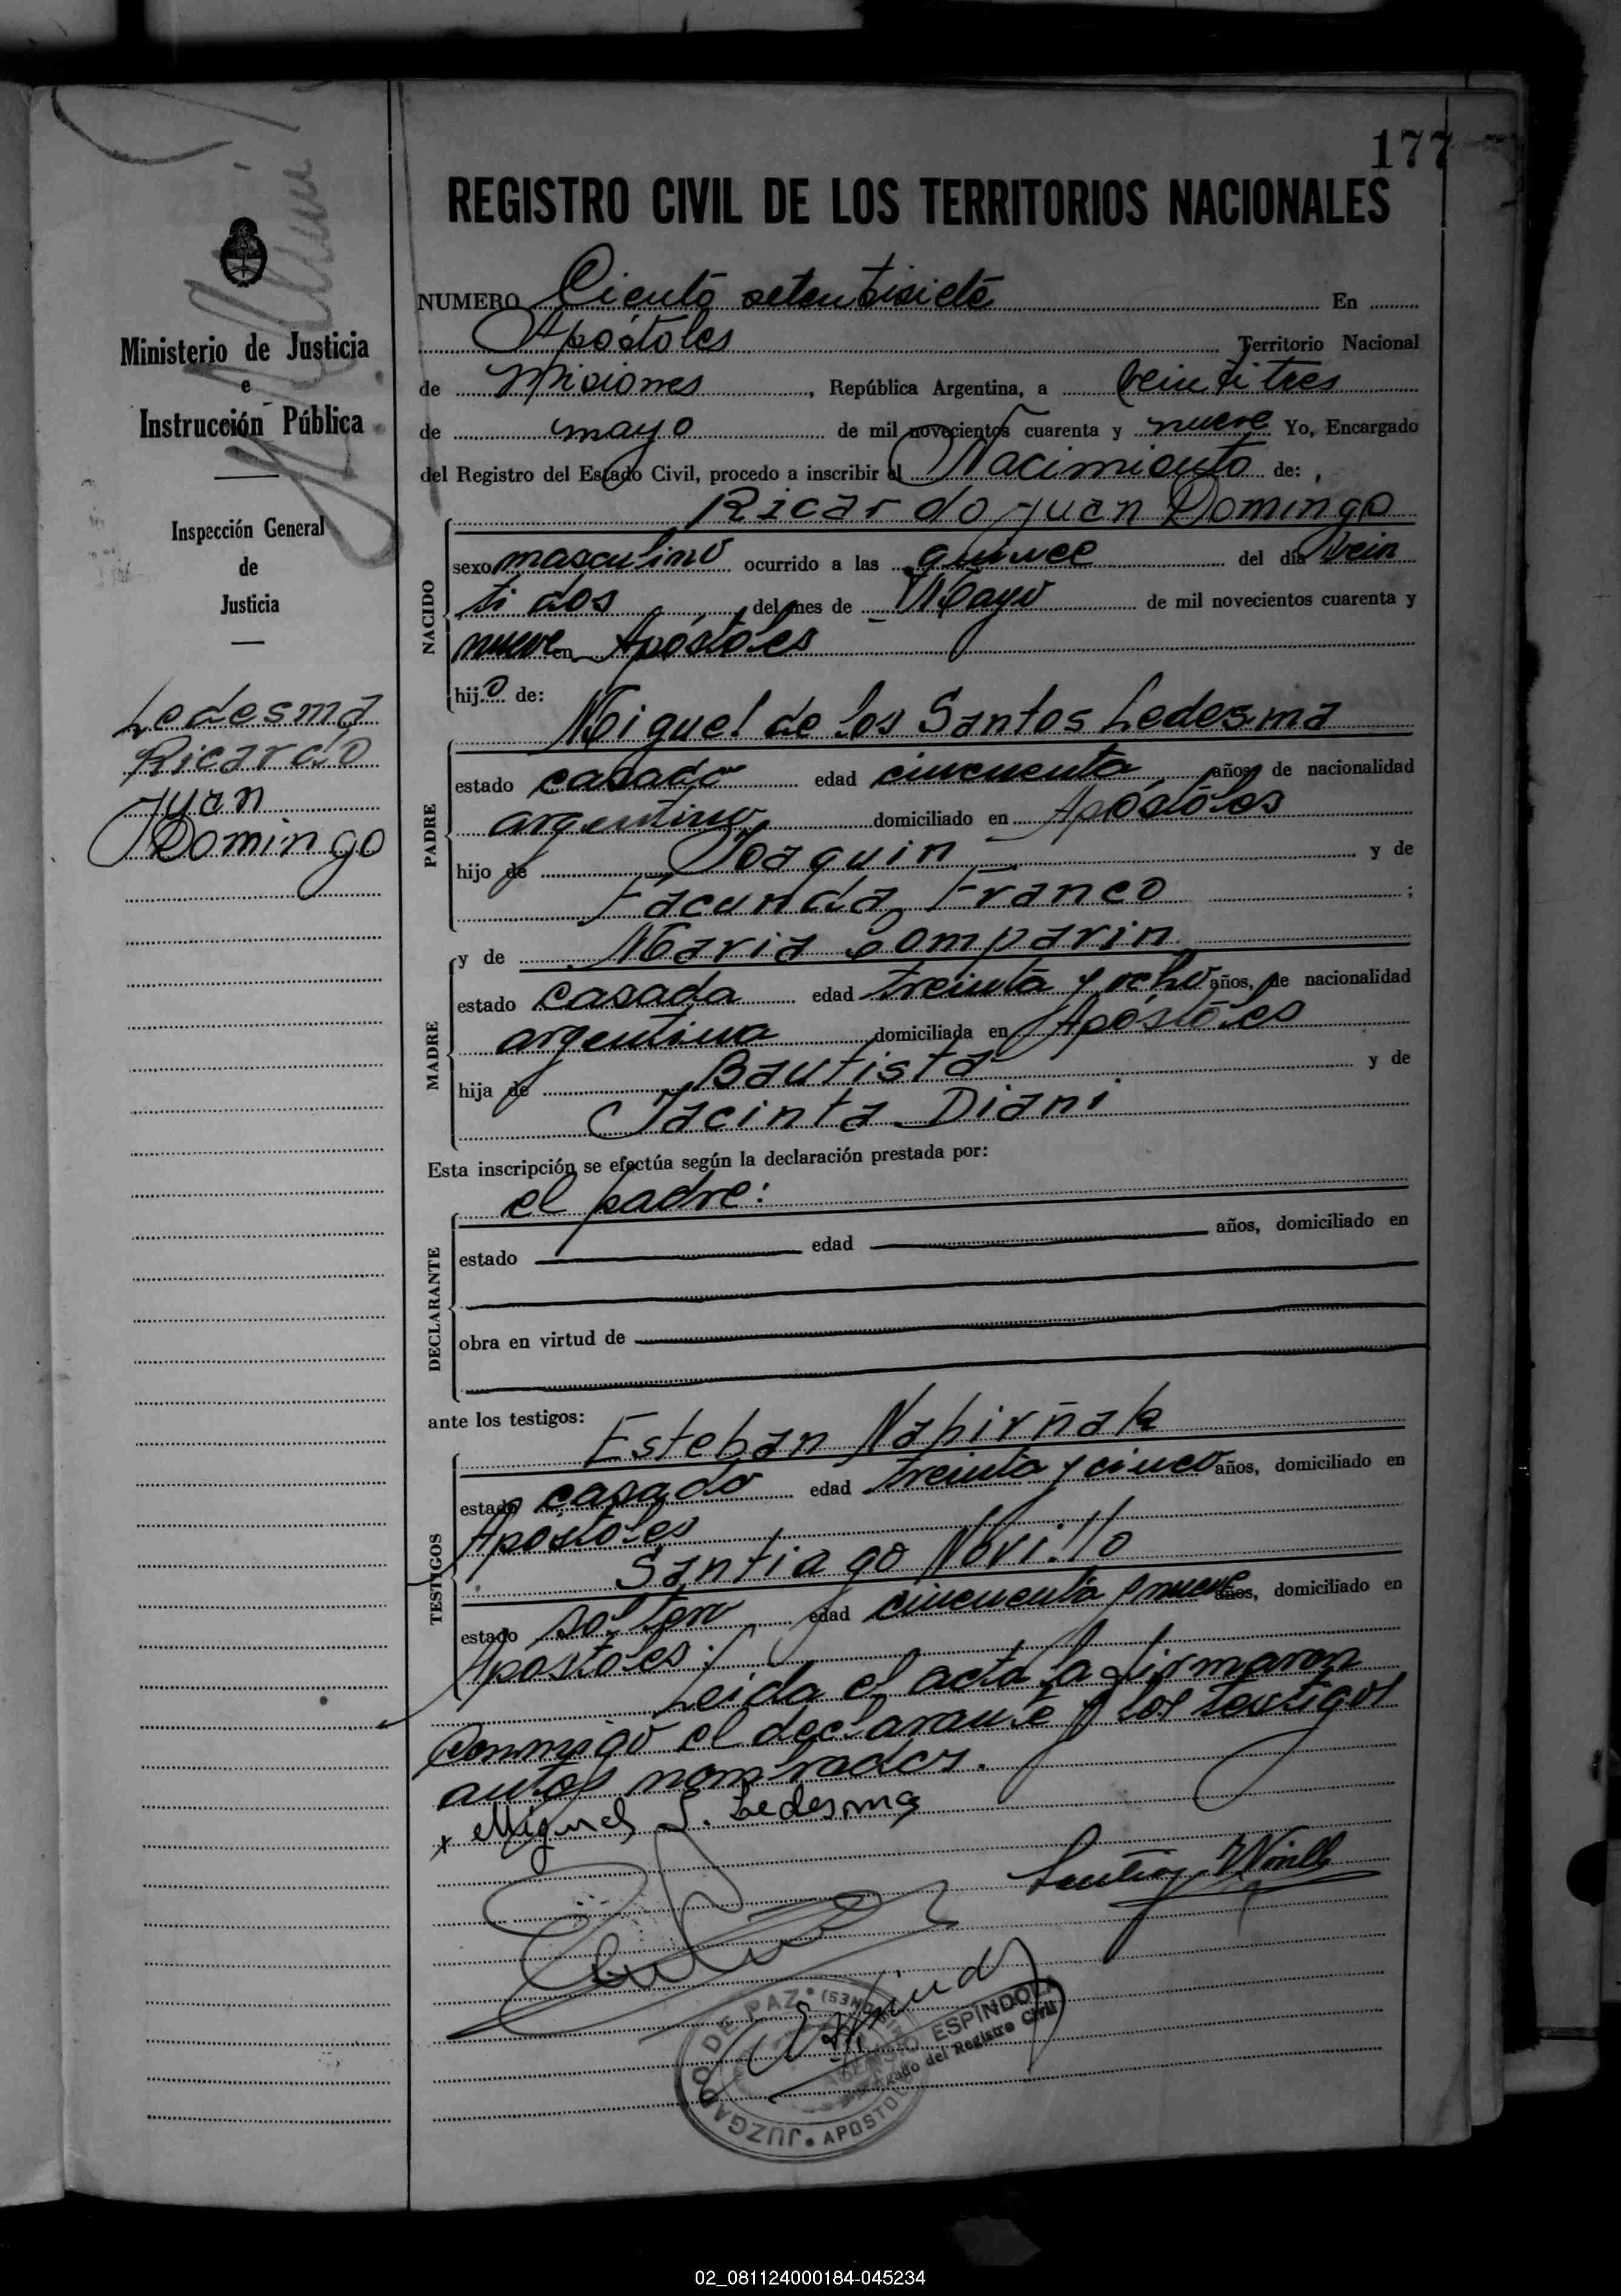 177
REGISTRO CIVIL DE LOS TERRITORIOS NACIONALES
Ministerio de Justicia
e
Instrucción Pública
Inspección General
de
Justicia
Ledesma
Ricardo
Juan
Domingo
NUMERO Ciento setentisiete En
Apóstoles Territorio Nacional
de Misiones, República Argentina, a veintitres
de mayo de mil novecientos cuarenta y nueve Yo, Encargado
del Registro del Estado Civil, procedo a inscribir el Nacimiento de:
Ricardo Juan Domingo
NACIDO
sexo masculino ocurrido a las quince del día vein
ti dos del mes de Mayo de mil novecientos cuarenta y
nueve en Apóstoles
hijo de:
Miguel de los Santos Ledesma
PADRE
estado casado edad cincuenta años de nacionalidad
argentino domiciliado en Apóstoles
hijo de Joaquin y de
Facunda Franco ;
y de Maria Comparin
MADRE
estado casada edad treinta y ocho años, de nacionalidad
argentina domiciliada en Apóstoles
hija de Bautista y de
Jacinta Diani
Esta inscripción se efectúa según la declaración prestada por:
el padre:
DECLARANTE
estado edad años, domiciliado en
obra en virtud de
ante los testigos:
Esteban Nahirñak
TESTIGOS
estado casado edad treinta y cinco años, domiciliado en
Apóstoles
Santiago Novillo
estado soltero edad cincuenta y nueve años, domiciliado en
Apóstoles:
Leida el acta la firmaron
conmigo el declarante y los testigos
antes nombrados.
x Miguel S. Ledesma
JUZGADO DE PAZ • APOSTOLES (MISIONES)
ESPINDOLA
Encargado del Registro Civil
02_081124000184-045234